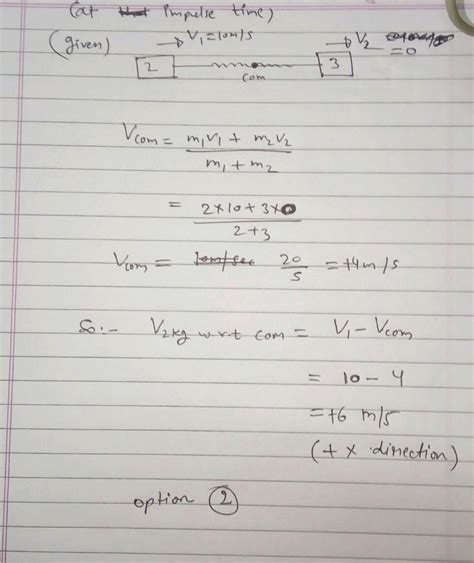 (at Impulse time)
(given) V₁=10m/s V₂ =0
2 com 3
Vcom = m₁V₁ + m₂V₂ / m₁ + m₂
= 2×10+3×0 / 2+3
Vcom = 10m/sec 20/5 = +4m/s
So:- V2kg w r t com = V₁ - Vcom
= 10 - 4
= +6 m/s
(+ x direction)
option 2